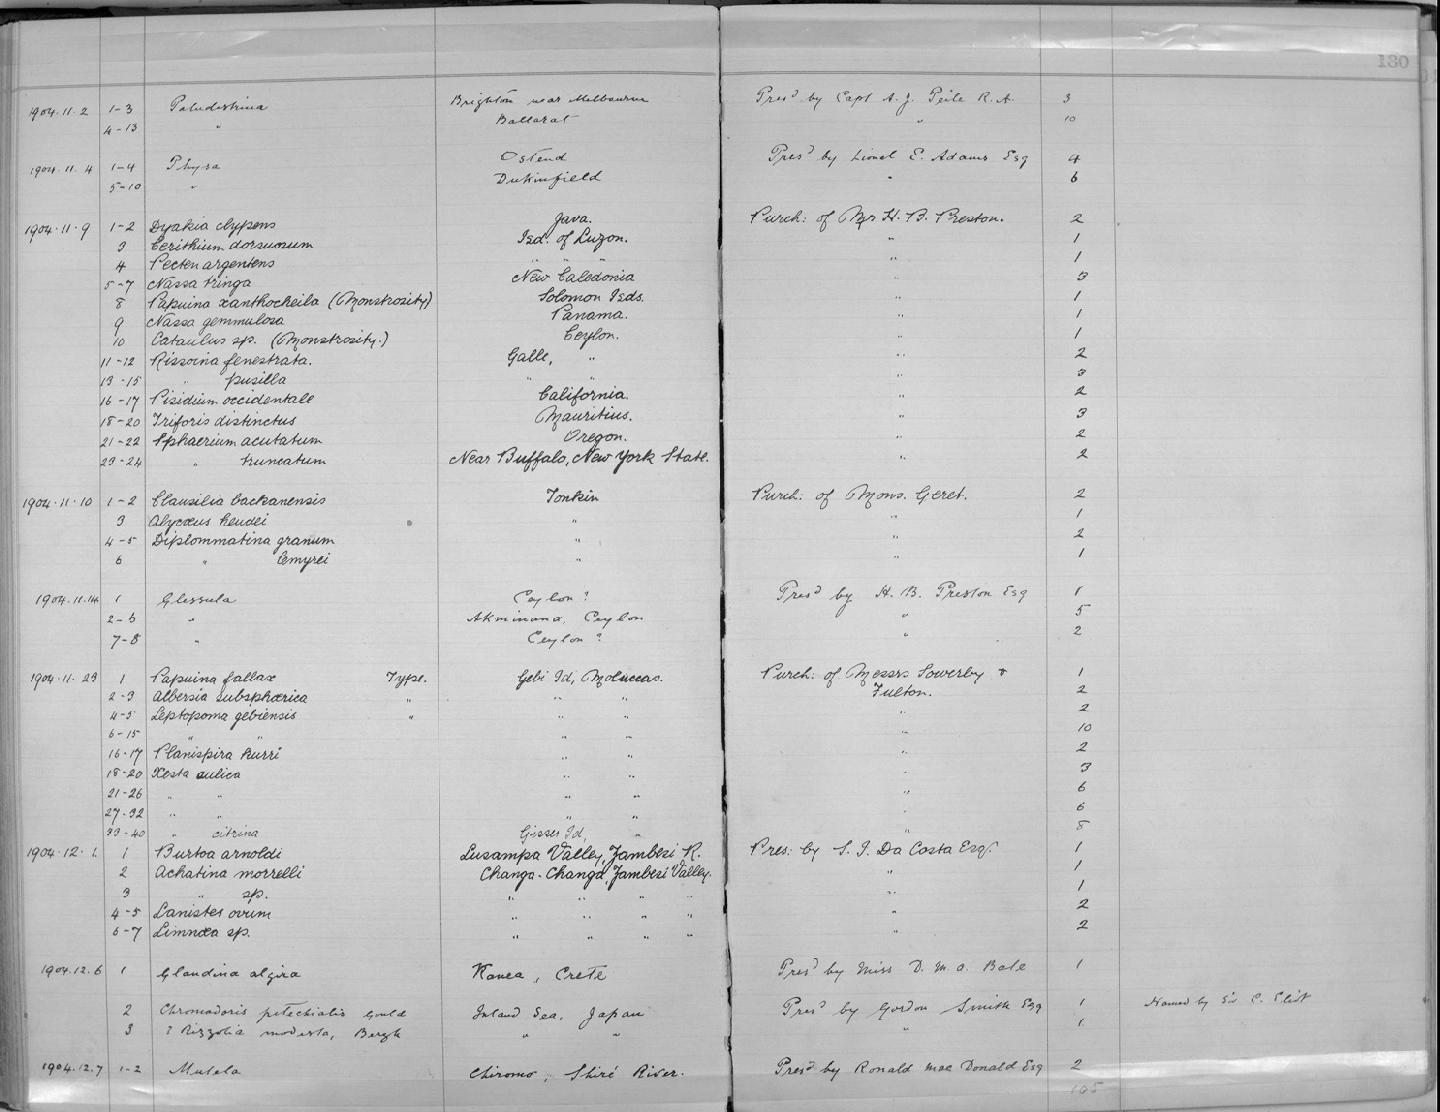 130
1904.11.2 1-3 Paludestrina Brighton near Melbourne Pres^d by Capt A. J. Peile R.A. 3
4-13 " Ballarat " 10
1904.11.4 1-4 Physa Ostend Pres^d by Lionel E. Adams Esq 4
5-10 " Dukinfield " 6
1904.11.9 1-2 Dyakia clypens Java. Purch: of Mr H. B. Preston. 2
3 Cerithium dorsuosum Isd. of Luzon. " 1
4 Pecten argenteus " " " " 1
5-7 Nassa tringa New Caledonia " 3
8 Papuina xanthocheila (Monstrosity) Solomon Isds. " 1
9 Nassa gemmulosa Panama. " 1
10 Cataulus sp. (Monstrosity.) Ceylon. " 1
11-12 Rissoina fenestrata. Galle, " " 2
13-15 " pusilla " " " 3
16-17 Pisidium occidentale California. " 2
18-20 Triforis distinctus Mauritius. " 3
21-22 Sphaerium acutatum Oregon. " 2
23-24 " truncatum Near Buffalo, New York State. " 2
1904.11.10 1-2 Clausilia backanensis Tonkin Purch: of Mons. Geret. 2
3 Alycæus heudei " " 1
4-5 Diplommatina granum " " 2
6 " Cmyrei " " 1
1904.11.14 1 Glessula Ceylon? Pres^d by H. B. Preston Esq 1
2-6 " Akminana, Ceylon " 5
7-8 " Ceylon? " 2
1904.11.23 1 Papuina fallax Type. Gebi Id, Moluccas. Purch: of Messrs Sowerby & 1
2-3 Albersia subsphærica " " " Fulton. 2
4-5 Leptopoma gebiensis " " " " 2
6-15 " " " " " 10
16-17 Planispira kurri " " " 2
18-20 Xesta aulica " " " 3
21-26 " " " " " 6
27-32 " " " " " 6
33-40 " citrina Gisser Id, " " 8
1904.12.1. 1 Burtoa arnoldi Lusampa Valley, Zambesi R. Pres: by S. I. Da Costa Esq^r 1
2 Achatina morrelli Changa-Changa, Zambesi Valley. " 1
3 " sp. " " " " " 1
4-5 Lanistes ovum " " " " " 2
6-7 Limnæa sp. " " " " " 2
1904.12.6 1 Glandina algira Kanea, Crete Pres^d by Miss D. M. A. Bate 1
2 Chromodoris petechialis Gould Inland Sea, Japan Pres^d by Gordon Smith Esq 1 Named by Sir C. Eliot
3 ? Rizzolia modesta, Bergh " " " 1
1904.12.7 1-2 Mutela Chiromo, Shiré River. Pres^d by Ronald Mac Donald Esq 2
105